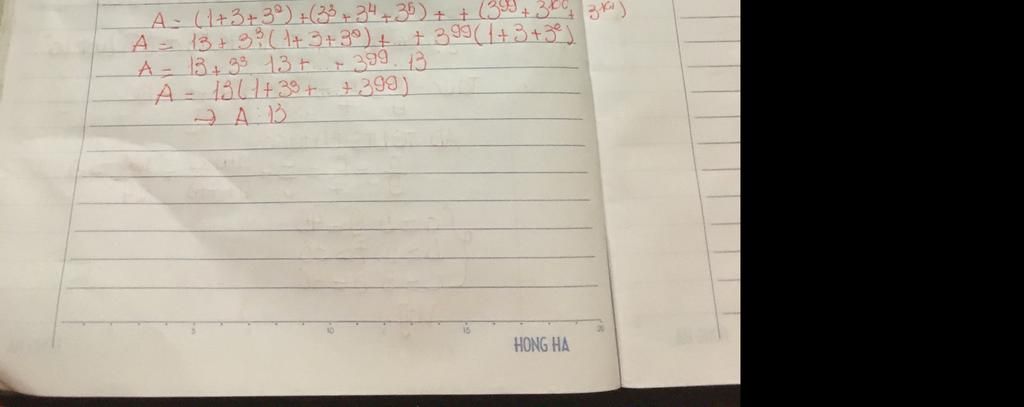 A = (1+3+3²)+(3³+3⁴+3⁵) + + (3⁹⁹+3¹⁰⁰+ 3¹⁰¹)
A = 13 + 3³.(1+3+3²) + .. + 3⁹⁹(1+3+3²)
A = 13+3³ 13+ .. +3⁹⁹. 13
A = 13(1+3³+ .. +3⁹⁹)
→ A ⋮ 13
5 10 15 20
HONG HA